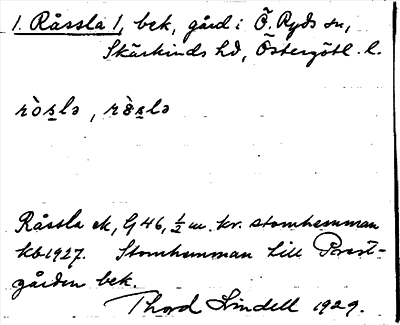 1. Råssla 1, bek, gård i Ö. Ryds sn,
Skärkinds hd, Östergötl. l.
ròs̲lə, rɵ̀s̲lə
Råssla ek, G 46, ½ m. kr. stomhemman
kb 1927. Stomhemman till Prost-
gården bek.
Thord Lindell 1929.